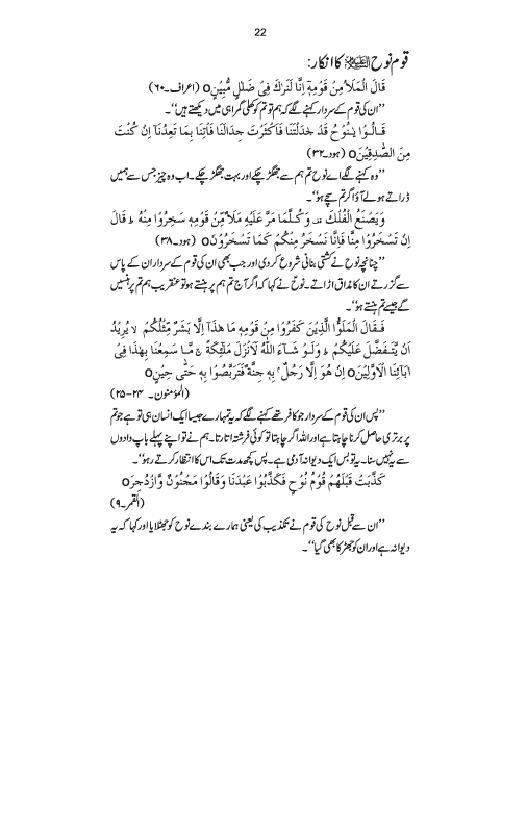 22
قوم نوح علیہ السلام کا انکار:
قَالَ الْمَلَاُ مِنْ قَوْمِهٖٓ اِنَّا لَنَرٰىكَ فِىْ ضَلٰلٍ مُّبِيْنٍo (اعراف۔۶۰)
’’ان کی قوم کے سردار کہنے لگے کہ ہم تو تم کو کھلی گمراہی میں دیکھتے ہیں‘‘۔
قَالُوْا يٰنُوْحُ قَدْ جٰدَلْتَنَا فَاَكْثَرْتَ جِدَالَنَا فَاْتِنَا بِمَا تَعِدُنَآ اِنْ كُنْتَ
مِنَ الصّٰدِقِيْنَo (ہود۔۳۲)
’’وہ کہنے لگے اے نوح تم ہم سے جھگڑ چکے اور بہت جھگڑ چکے۔ اب وہ چیز جس سے ہمیں
ڈراتے ہو لے آؤ اگر تم سچے ہو‘‘۔
وَيَصْنَعُ الْفُلْكَ وَكُلَّمَا مَرَّ عَلَيْهِ مَلَاٌ مِّنْ قَوْمِهٖ سَخِرُوْا مِنْهُ ط قَالَ
اِنْ تَسْخَرُوْا مِنَّا فَاِنَّا نَسْخَرُ مِنْكُمْ كَمَا تَسْخَرُوْنَo (ہود۔۳۸)
’’چنانچہ نوح نے کشتی بنانی شروع کر دی اور جب بھی ان کی قوم کے سردار ان کے پاس
سے گزرتے ان کا مذاق اڑاتے۔ نوح نے کہا کہ اگر آج تم ہم پر ہنستے ہو تو عنقریب ہم تم پر ہنسیں
گے جیسے تم ہنستے ہو‘‘۔
فَقَالَ الْمَلَؤُا الَّذِيْنَ كَفَرُوْا مِنْ قَوْمِهٖ مَا هٰذَآ اِلَّا بَشَرٌ مِّثْلُكُمْ لا يُرِيْدُ
اَنْ يَّتَفَضَّلَ عَلَيْكُمْ ط وَلَوْ شَآءَ اللّٰهُ لَاَنْزَلَ مَلٰٓئِكَةً ج مَّا سَمِعْنَا بِهٰذَا فِىْٓ
اٰبَآئِنَا الْاَوَّلِيْنَo اِنْ هُوَ اِلَّا رَجُلٌۢ بِهٖ جِنَّةٌ فَتَرَبَّصُوْا بِهٖ حَتّٰى حِيْنٍo
(المؤمنون۔۲۴-۲۵)
’’پس ان کی قوم کے سردار جو کافر تھے کہنے لگے کہ یہ تمہارے جیسا ایک انسان ہی تو ہے جو تم
پر برتری حاصل کرنا چاہتا ہے اور اللہ اگر چاہتا تو کوئی فرشتہ اتارتا۔ ہم نے تو اپنے پہلے باپ دادوں
سے یہ نہیں سنا۔ یہ تو بس ایک دیوانہ آدمی ہے۔ پس کچھ مدت تک اس کا انتظار کرتے رہو‘‘۔
كَذَّبَتْ قَبْلَهُمْ قَوْمُ نُوْحٍ فَكَذَّبُوْا عَبْدَنَا وَقَالُوْا مَجْنُوْنٌ وَّازْدُجِرَo
(القمر۔۹)
’’ان سے قبل نوح کی قوم نے تکذیب کی یعنی ہمارے بندے نوح کو جھٹلایا اور کہا کہ یہ
دیوانہ ہے اور ان کو جھڑکا بھی گیا‘‘۔